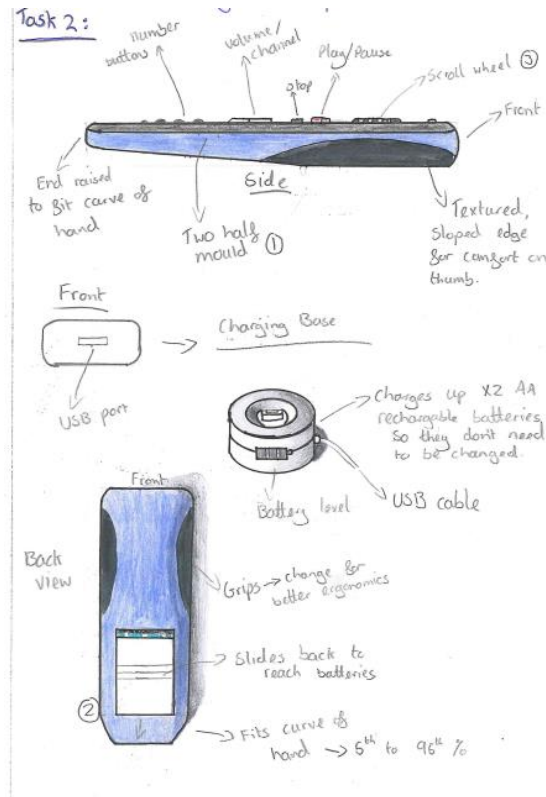 Task 2:
number
buttons
volume/
channel
stop
Play/Pause
Scroll wheel ③
Front
End raised
to fit curve of
hand
Side
Two half
mould ①
Textured,
sloped edge
for comfort on
thumb.
Front
USB port
Charging Base
Charges up X2 AA
rechargable batteries
so they don't need
to be changed.
Battery level
USB cable
Front
Back
view
Grips → change for
better ergonomics
Slides back to
reach batteries
②
Fits curve of
hand → 5th to 95th %